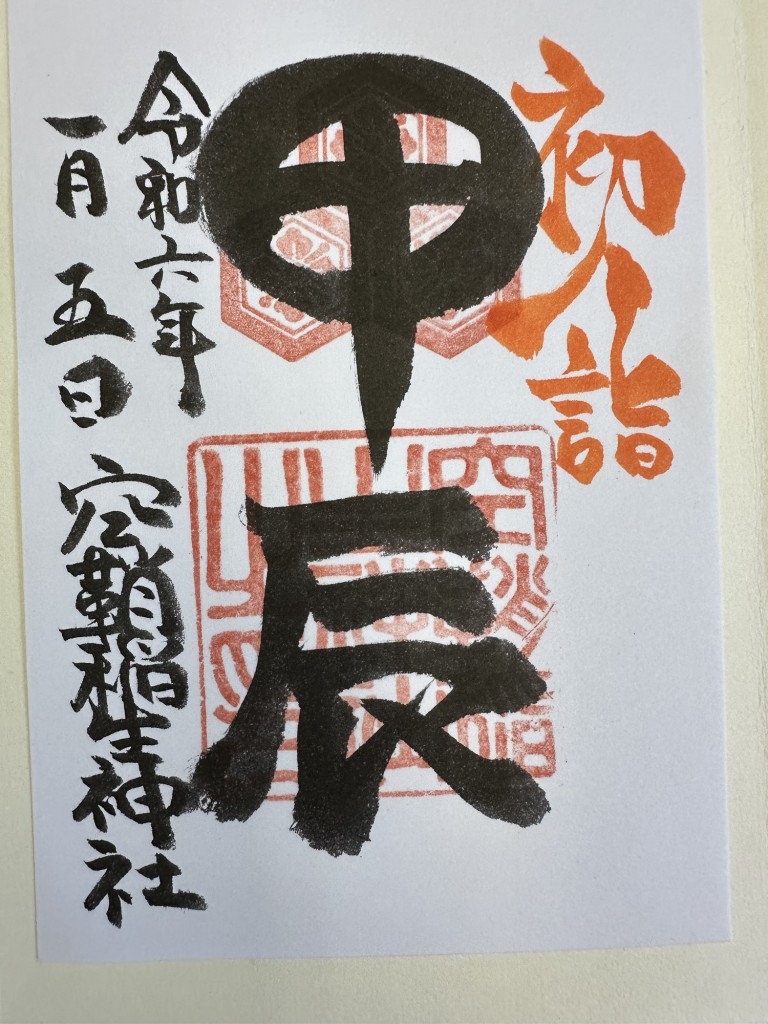 初詣
甲辰
令和六年
一月五日
空鞘稲生神社